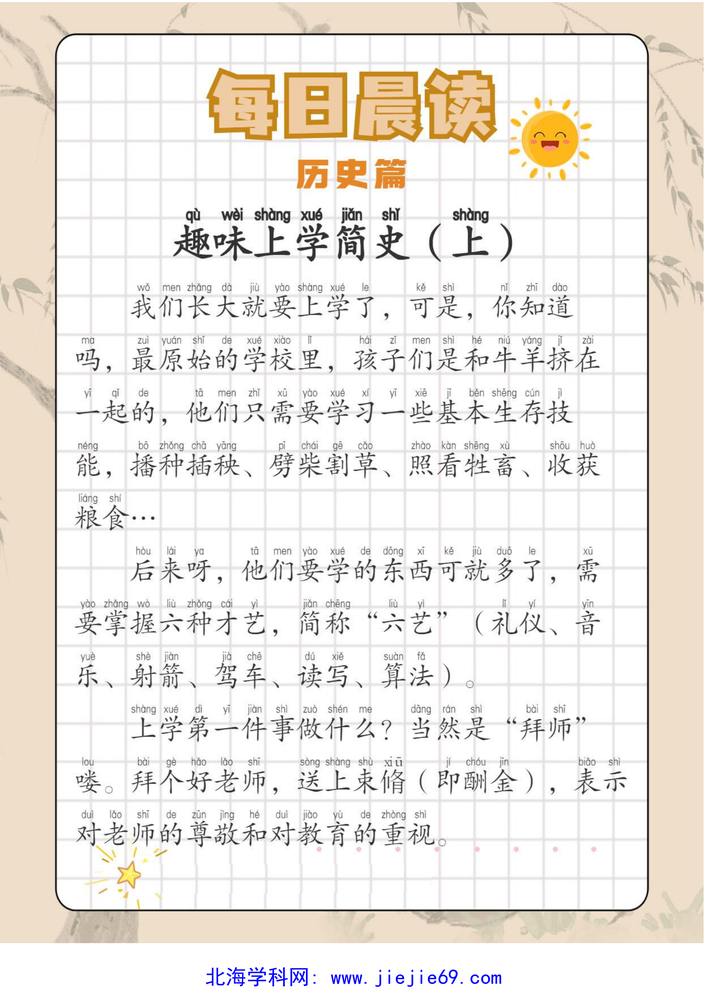 每日晨读
历史篇
qù wèi shàng xué jiǎn shǐ shàng
趣味上学简史（上）
wǒ men zhǎng dà jiù yào shàng xué le kě shì nǐ zhī dào
我们长大就要上学了，可是，你知道
ma zuì yuán shǐ de xué xiào lǐ hái zǐ men shì hé niú yáng jǐ zài
吗，最原始的学校里，孩子们是和牛羊挤在
yī qǐ de tā men zhǐ xū yào xué xí yī xiē jī běn shēng cún jì
一起的，他们只需要学习一些基本生存技
néng bō zhǒng chā yāng pī chái gē cǎo zhào kàn shēng xù shōu huò
能，播种插秧、劈柴割草、照看牲畜、收获
liáng shí
粮食…
hòu lái ya tā men yào xué de dōng xī kě jiù duō le xū
后来呀，他们要学的东西可就多了，需
yào zhǎng wò liù zhǒng cái yì jiǎn chēng liù yì lǐ yí yīn
要掌握六种才艺，简称“六艺”（礼仪、音
yuè shè jiàn jià chē dú xiě suàn fǎ
乐、射箭、驾车、读写、算法）。
shàng xué dì yī jiàn shì zuò shén me dāng rán shì bài shī
上学第一件事做什么？当然是“拜师”
lou bài gè hǎo lǎo shī sòng shàng shù xiū jí chóu jīn biǎo shì
喽。拜个好老师，送上束脩（即酬金），表示
duì lǎo shī de zūn jìng hé duì jiào yù de zhòng shì
对老师的尊敬和对教育的重视。
北海学科网：www.jiejie69.com